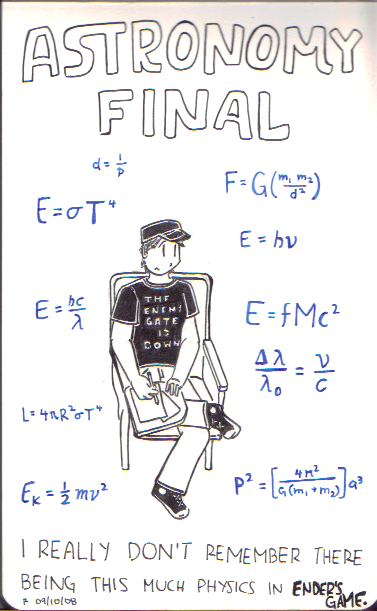 ASTRONOMY
FINAL
d = 1/p
F = G(m₁ m₂/d²)
E = σT⁴
E = hν
E = hc/λ
E = fMc²
THE
ENEMY
GATE
IS
DOWN
Δλ/λ₀ = v/c
L = 4πR²σT⁴
P² = [4π²/G(m₁+m₂)]a³
Eₖ = ½ mv²
I REALLY DON'T REMEMBER THERE
BEING THIS MUCH PHYSICS IN ENDER'S
GAME.
09/10/08